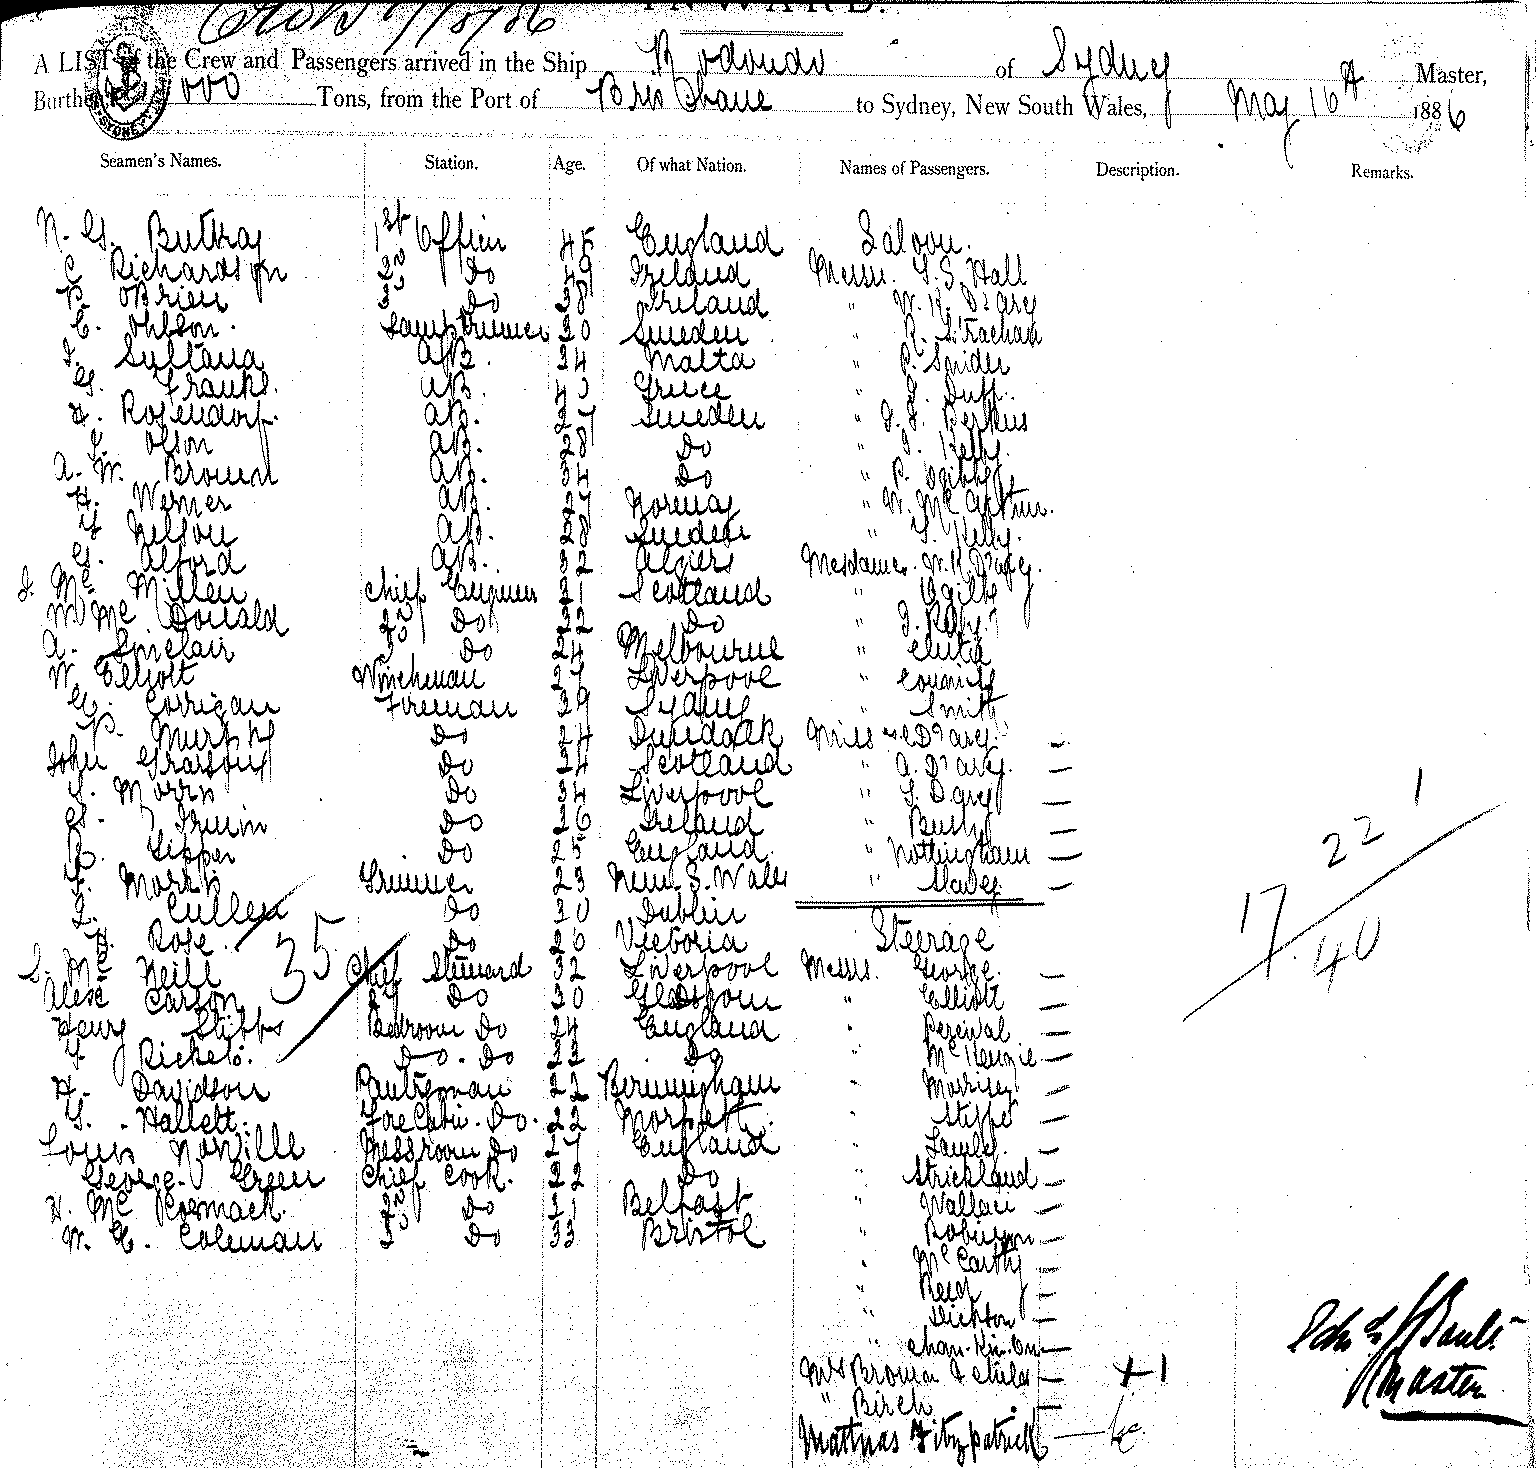 INWARD.
A LIST of the Crew and Passengers arrived in the Ship Rodondo of Sydney Master,
Burthen 000 Tons, from the Port of Brisbane to Sydney, New South Wales, May 16th 1886
Seamen's Names. Station. Age. Of what Nation. Names of Passengers. Description. Remarks.
N. G. Buttray 1st Officer 45 England Saloon.
C Richardson 2nd Do 49 Ireland Messrs. Hall
P. OBrien 3 Do 38 Ireland " W. K. D'arcy
C. Ohlson. Lamp Trimmer 30 Sweden " R. Strachan
J. Sultana AB. 34 Malta " Snider
G. Franks. AB. 40 Greece " Duff.
H. Rosendorf. AB. 27 Sweden " Perkins
L. Olson AB. 28 Do " Kelly.
A. W. Brown AB. 34 Do " Ogilby
H. Werner AB. 27 Norway " W. McArthur.
Nelson AB. 28 Sweden " Kelly.
G. Alford AB. 32 Algiers Mesdames. W. K. D'arcy.
J. Mc Millen Chief Engineer 31 Scotland " Ogilby
W Mc Donald 2nd Do 32 Do " Kelly
A. Sinclair 3 Do 24 Melbourne "
W Elliott Wincheman 27 Liverpool "
G. Corrigan Fireman 39 Sydney " Smith
P. Murphy Do 24 Dundalk Miss D'arcy —
John Do 34 Scotland " A. D'arcy. —
Morris Do 34 Liverpool " D'arcy —
G. Irwin Do 26 Ireland " —
Do 25 England. " Nottingham —
Morris Trimmer 23 New. S. Wales " —
Cullen Do 30 Dublin
Rose. Do 26 Victoria Steerage
35
S. Mc Neill Chief Steward 32 Liverpool Messrs. George. —
Alex Carson 2nd Do 30 Glasgow " Elliott —
Henry Stibbs Bedroom Do 24 England " Percival —
Rickets. Do. Do 22 Do " McKenzie —
H. Davidson Pantryman 22 Birmingham " Morrisey —
S. Hallett. ForeCabin. Do. 22 Morpeth. " —
Louis Norville Messroom Do 17 England " —
George. Green Chief Cook. 22 Do " Strickland —
H. Mc Cormack. 2nd Do 31 Belfast " Wallace —
W. C. Coleman 3 Do 33 Bristol " Robinson —
" McCarthy —
" Reid —
" —
" —
Mrs Brown & child — +1
" Birch —
Matthias Fitzpatrick —
22 1
17
40
Master